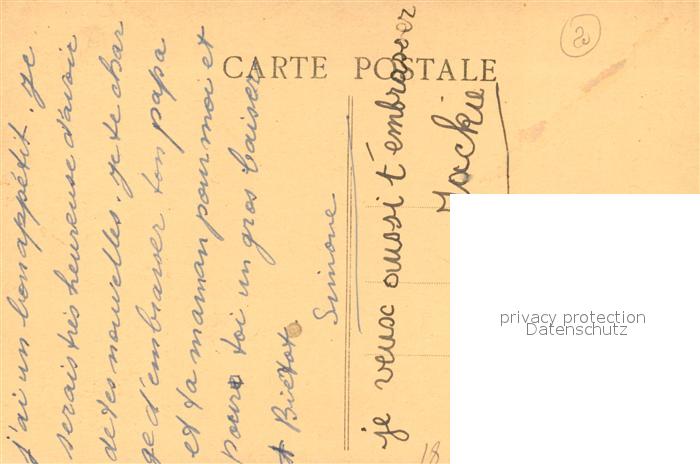 CARTE POSTALE
j'ai un bon appétit. Je
serais très heureuse d'avoir
de tes nouvelles. Je te char
ge d'embrasser ton papa
et ta maman pour moi et
pour toi un gros baiser
Simone
je veux aussi t'embrasser
Jackie
privacy protection
Datenschutz
18